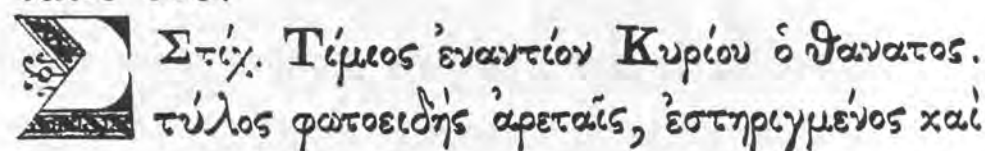 Στίχ. Τίμιος ἐναντίον Κυρίου ὁ θανατος.
Στύλος φωτοειδὴς ἀρεταῖς, ἐστηριγμένος καὶ